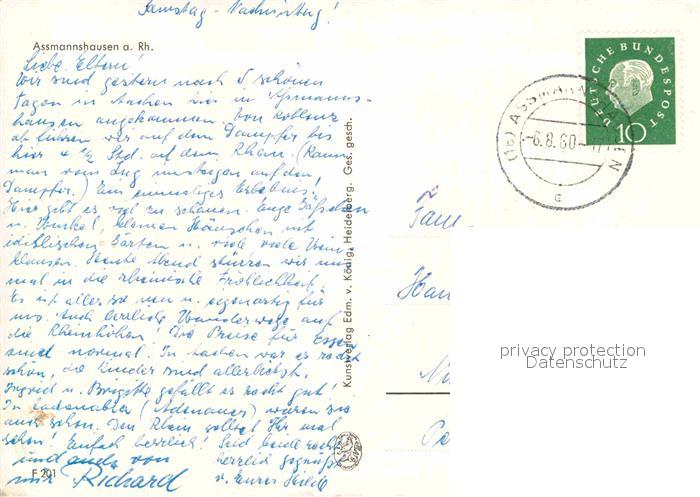 Samstag - Nachmittag!
Assmannshausen a. Rh.
Liebe Eltern!
Wir sind gestern nach 5 schönen
Tagen in Aachen hier in Assmanns-
hausen angekommen. Von Koblenz
ab fuhren wir auf dem Dampfer bis
hier 4 ½ Std. auf dem Rhein. (Kann
man vom Zug umsteigen auf den
Dampfer.) Ein einmaliges Erlebnis.
Hier gibt es viel zu schauen. Enge Gäßchen
u. Winkel, kleinen Häuschen mit
idillischen Gärten u. viele viele Wein-
klausen. Heute Abend stürzen wir uns
mal in die rheinische Fröhlichkeit.
Es ist alles so neu u. eigenartig für
uns. Auch herrliche Wanderwege auf
die Rheinhöhen! Die Preise für Essen
sind normal. In Aachen war es recht
schön, die Kinder sind allerliebst.
Ingrid u. Brigitte gefällt es recht gut!
In Cadenabbia (Adenauer) waren sie
auch schon. Den Rhein solltet Ihr mal
sehen! Einfach herrlich! Seid beide recht
herzlich gegrüßt
und auch von
mir Richard
v. Eurer Hilde
F 201
Kunstverlag Edm. v. König, Heidelberg. Ges. gesch.
DEUTSCHE BUNDESPOST
10
(16) ASSMANNSHAUSEN
-6.8.60-
c
Fam
Han
Nü
privacy protection
Datenschutz